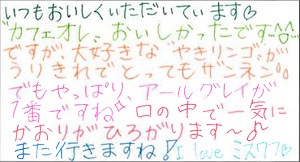 いつもおいしくいただいてい ます♡
"カフェオレ、おいしかったです♡"^^
ですが、大好きな"やきリンゴ"が
うりきれでとってもザンネン。
でもやっぱり、アールグレイが
1番ですね♪ 口の中で一気に
かおりがひろがります〜♪
また行きますね! I love ミスワフ♡